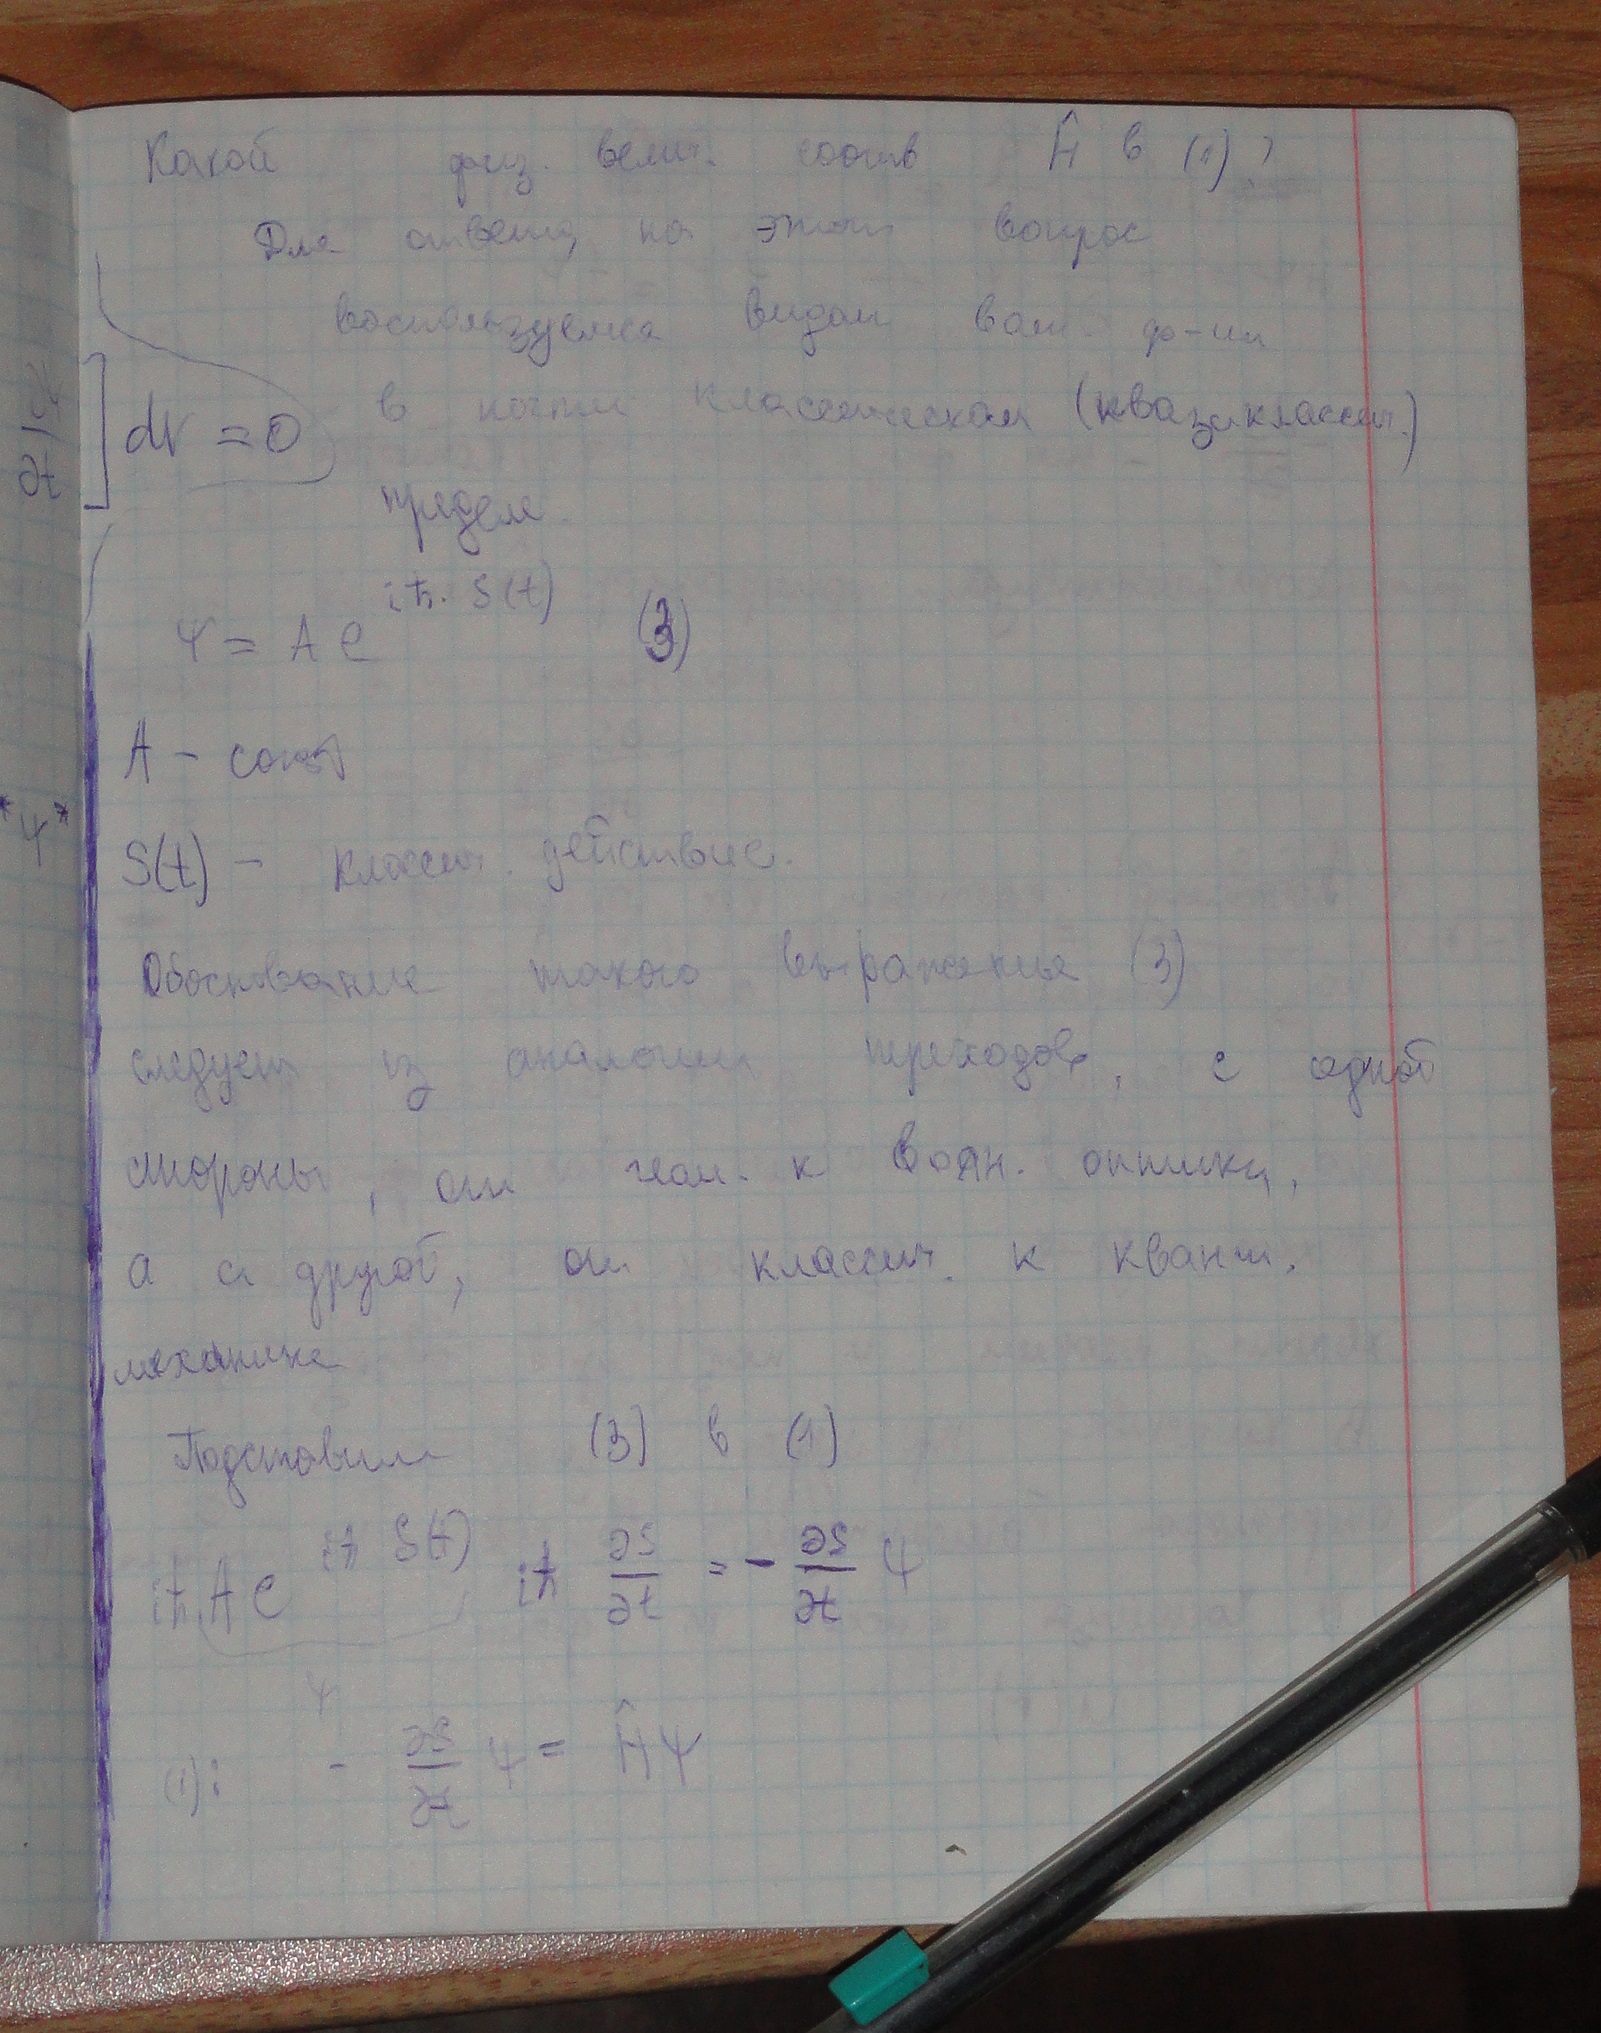 Какой физ. велич. соотв Ĥ в (1)?
Для ответа на этот вопрос
воспользуемся видом волн. ф-ии
] dV = 0
в почти классическом (квазиклассич.)
пределе.
Ψ = A e^{iħ. S(t)} (3)
A - const
S(t) - классич. действие.
Обоснование такого выражения (3)
следует из аналогии преходов, с одной
стороны, от геом. к волн. оптики,
а с другой, от классич. к квант.
механике
Подставим (3) в (1)
iħ A e^{iħ S(t)} iħ ∂S/∂t = - ∂S/∂t Ψ
Ψ
(1): - ∂S/∂t Ψ = ĤΨ